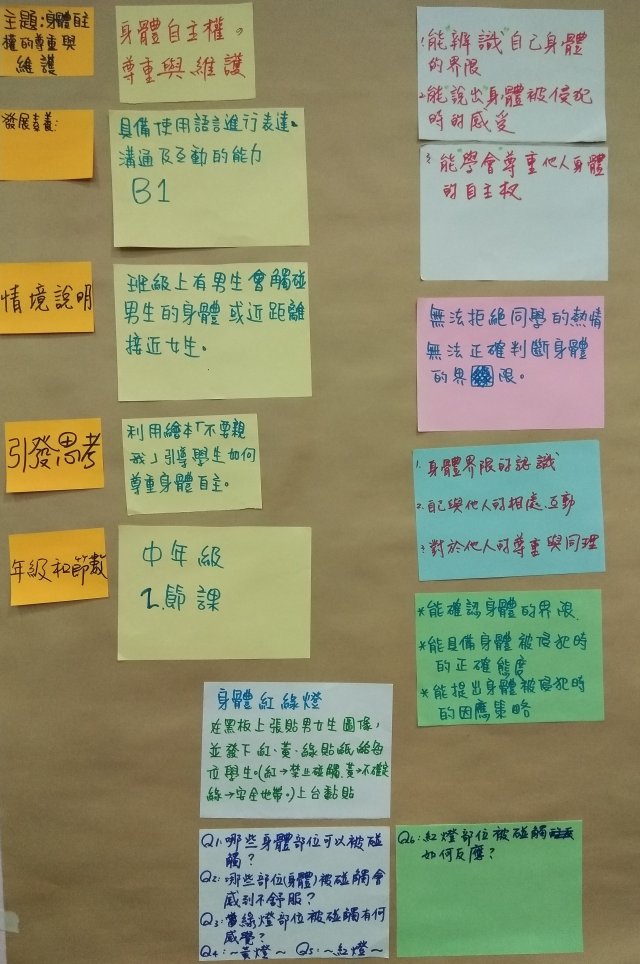 主題:身體自主
權的尊重與
維護
身體自主權。
尊重與維護
發展素養:
具備使用語言進行表達、
溝通及互動的能力
B1
情境說明
班級上有男生會觸碰
男生的身體或近距離
接近女生。
引發思考
利用繪本「不要親
我」引導學生如何
尊重身體自主。
年級和節數
中年級
2.節課
1.能辨識自己身體
的界限
2.能說出身體被侵犯
時的感受
3.能學會尊重他人身體
的自主权
無法拒絕同學的熱情
無法正確判斷身體
的界限。
1.身體界限的認識
2.自己與他人的相處、互動
3.對於他人的尊重與同理
*能確認身體的界限.
*能具備身體被侵犯時
的正確態度
*能提出身體被侵犯時
的因應策略
身體紅綠燈
在黑板上張貼男女生圖像,
並發下紅、黃、綠貼紙給每
位學生。(紅→禁止碰觸,黃→不確定
綠→安全地帶。)上台黏貼
Q1:哪些身體部位可以被碰
觸?
Q2:哪些部位(身體)被碰觸會
感到不舒服?
Q3:當綠燈部位被碰觸有何
感覺?
Q4:~黃燈~ Q5:~紅燈~
Q6:紅燈部位被碰觸
如何反應?